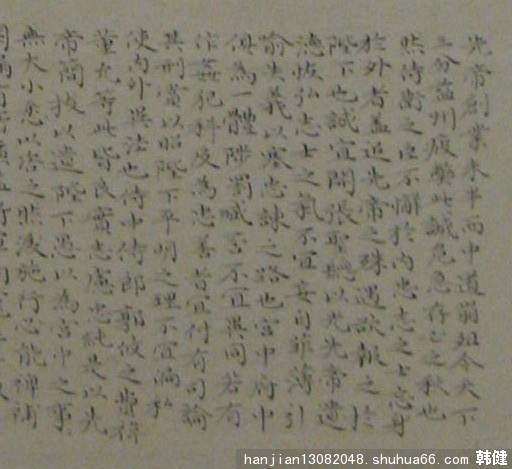 先帝創業未半而中道崩殂今天下
三分益州疲弊此誠危急存亡之秋也
然侍衛之臣不懈於內忠志之士忘身
於外者蓋追先帝之殊遇欲報之於
陛下也誠宜開張聖聽以光先帝遺
德恢弘志士之氣不宜妄自菲薄引
喻失義以塞忠諫之路也宮中府中
俱為一體陟罰臧否不宜異同若有
作姦犯科及為忠善者宜付有司論
其刑賞以昭陛下平明之理不宜偏私
使內外異法也侍中侍郎郭攸之費禕
董允等此皆良實志慮忠純是以先
帝簡拔以遺陛下愚以為宮中之事
無大小悉以咨之然後施行必能裨補
hanjian13082048.shuhua66.com 韩健